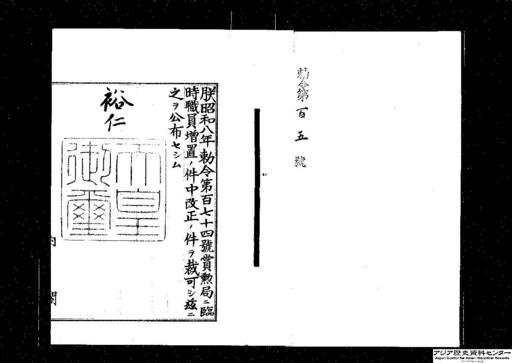 勅令第百五號
朕昭和八年勅令第百七十四號賞勲局ニ臨
時職員増置ノ件中改正ノ件ヲ裁可シ茲ニ
之ヲ公布セシム
裕仁
天皇
御璽
内閣
アジア歴史資料センター
Japan Center for Asian Historical Records